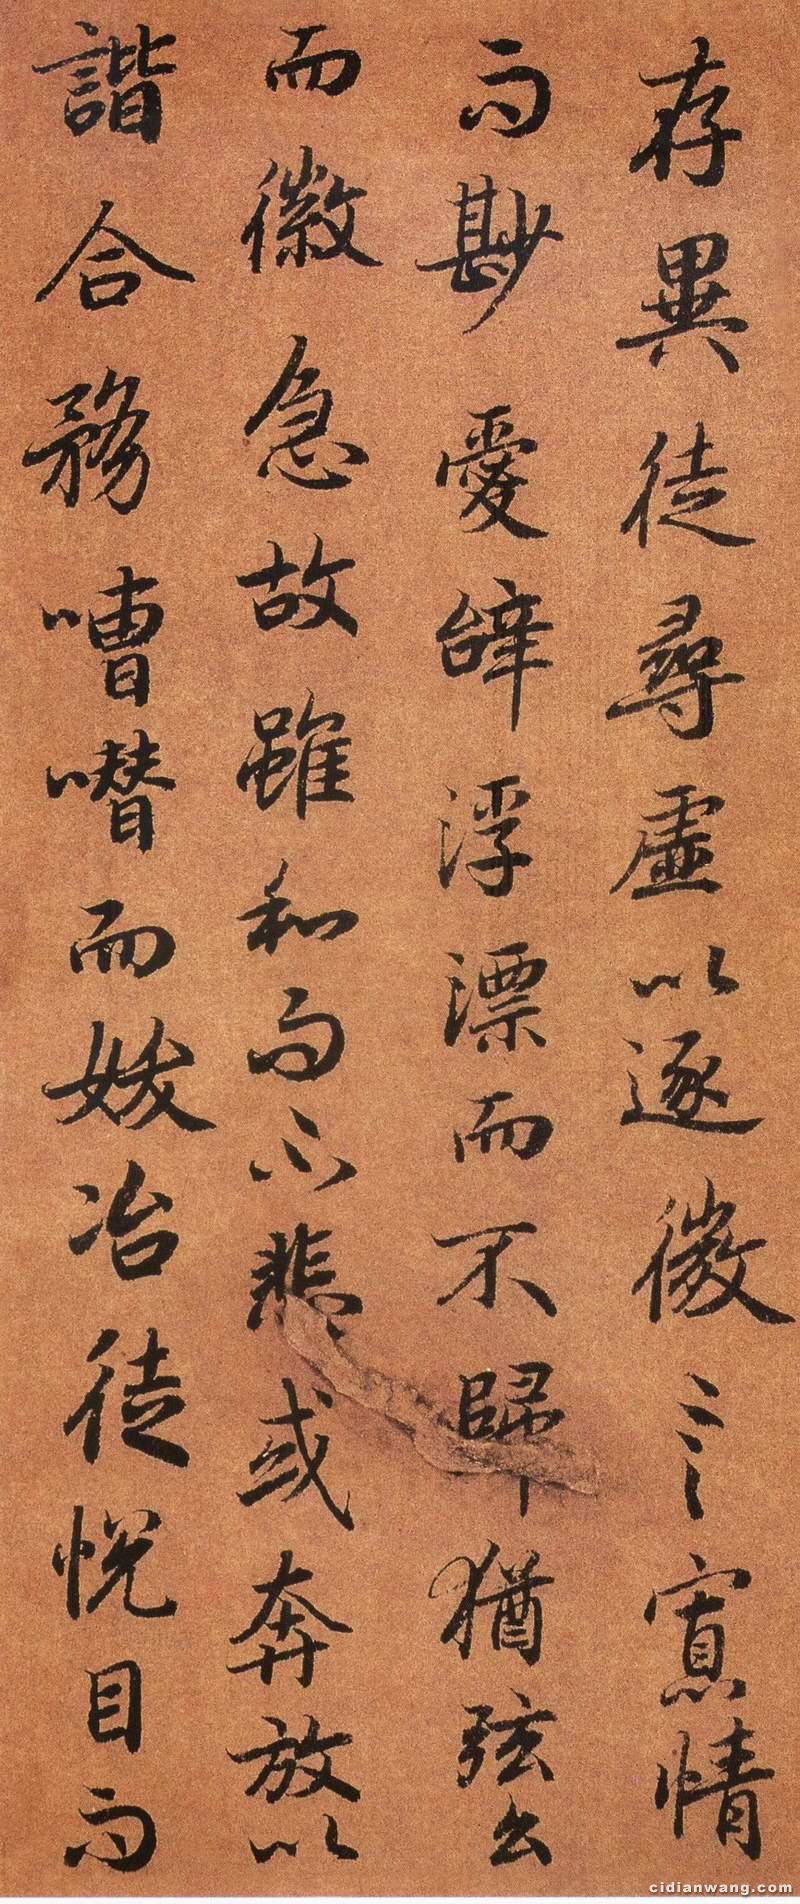 存異徒尋虛以逐微言寡情
而尠愛辭浮漂而不歸猶弦么
而徽急故雖和而不悲或奔放以
諧合務嘈噆而妖冶徒悅目而
cidianwang.com